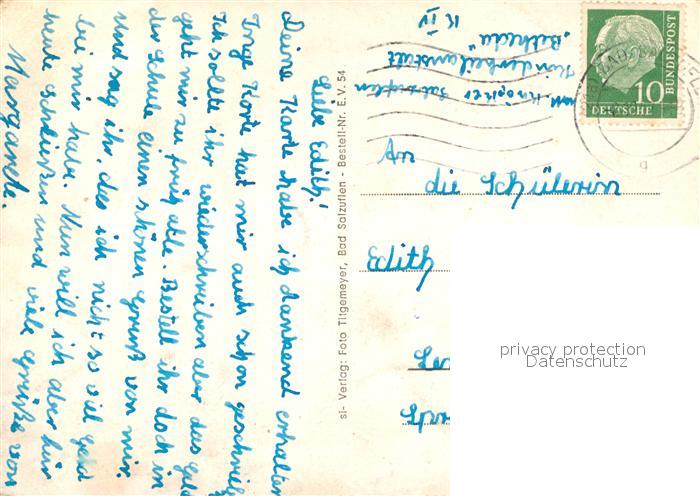 Liebe Edith!
Deine Karte habe ich dankend erhalten
Inge Korte hat mir auch schon geschrieb
Ich sollte ihr wiederschreiben aber das Geld
geht mir zu früh alle. Bestell ihr doch in
der Schule einen schönen Gruß von mir.
Und sag ihr, das ich nicht so viel Geld
bei mir habe. Nun will ich aber für
heute schließen und viele Grüße von
Margarete.
sl- Verlag: Foto Titgemeyer, Bad Salzuflen - Bestell-Nr. E.V. 54
Salzuflen
Kinderheilanstalt
"Bethesda"
K IV
10
DEUTSCHE
BUNDESPOST
An
die Schülerin
Edith
privacy protection
Datenschutz